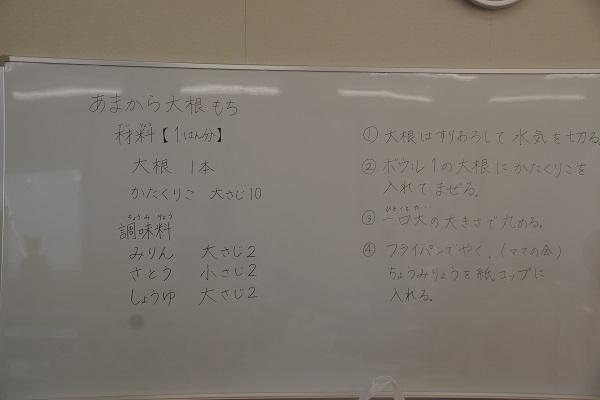 あまから大根もち
材料【1はん分】
大根 1本
かたくりこ 大さじ10
ちょうみりょう
調味料
みりん 大さじ2
さとう 小さじ2
しょうゆ 大さじ2
① 大根はすりおろして水気を切る。
② ボウル1の大根にかたくりこを
入れてまぜる。
③ 一口大の大きさで丸める。
④ フライパンでやく。(ママの会)
ちょうみりょうを紙コップに
入れる。